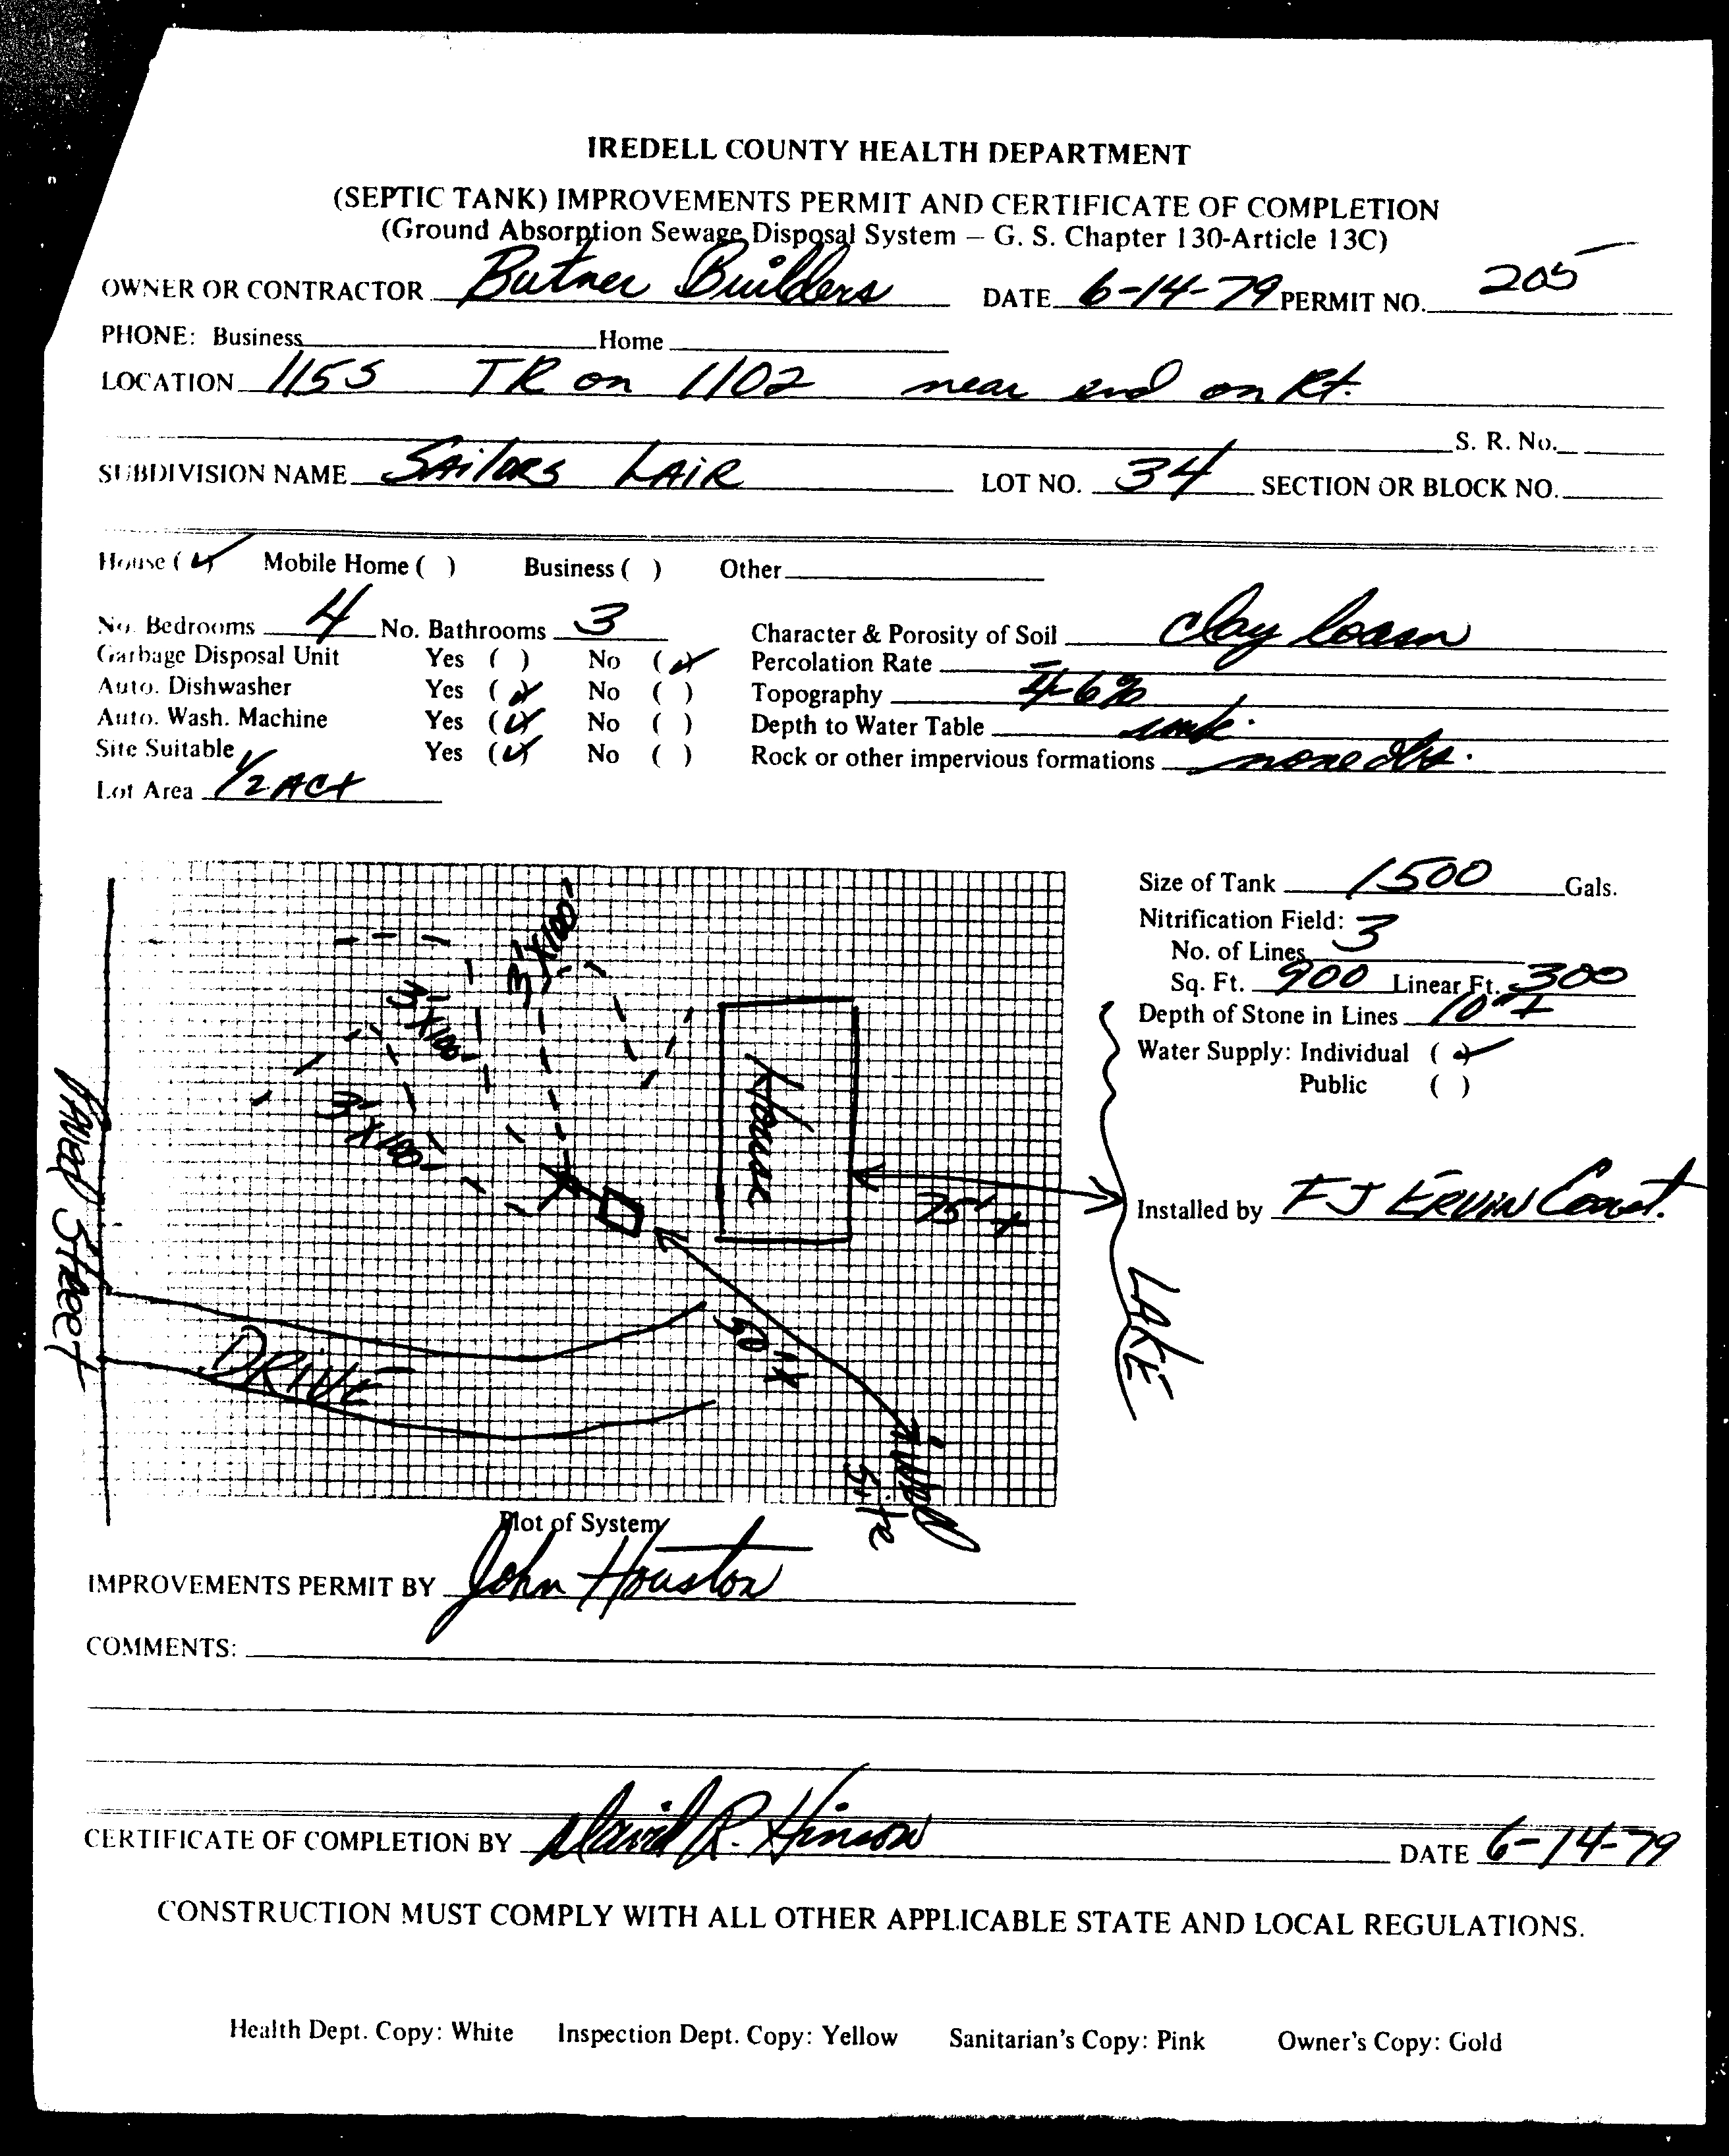 IREDELL COUNTY HEALTH DEPARTMENT
(SEPTIC TANK) IMPROVEMENTS PERMIT AND CERTIFICATE OF COMPLETION
(Ground Absorption Sewage Disposal System – G. S. Chapter 130-Article 13C)
OWNER OR CONTRACTOR Butner Builders DATE 6-14-79 PERMIT NO. 205
PHONE: Business Home
LOCATION 1155 TR on 1102 near end on Rt.
S. R. No.
SUBDIVISION NAME SAilORS LAiR LOT NO. 34 SECTION OR BLOCK NO.
House (✓) Mobile Home ( ) Business ( ) Other
No. Bedrooms 4 No. Bathrooms 3 Character & Porosity of Soil clay loam
Garbage Disposal Unit Yes ( ) No (✓) Percolation Rate –
Auto. Dishwasher Yes (✓) No ( ) Topography 4-6%
Auto. Wash. Machine Yes (✓) No ( ) Depth to Water Table unk.
Site Suitable Yes (✓) No ( ) Rock or other impervious formations none obs.
Lot Area 1/2 AC±
Size of Tank 1500 Gals.
Nitrification Field:
No. of Lines 3
Sq. Ft. 900 Linear Ft. 300
Depth of Stone in Lines 10"±
Water Supply: Individual (✓)
Public ( )
Installed by FJ ERVIN Const.
3'X100'
3'X100'
3'X100'
House
75' ±
PAVED Street
DRIVE
50' ±
Well
Site
LAKE
Plot of System
IMPROVEMENTS PERMIT BY John Houston
COMMENTS:
CERTIFICATE OF COMPLETION BY David R. Hinson DATE 6-14-79
CONSTRUCTION MUST COMPLY WITH ALL OTHER APPLICABLE STATE AND LOCAL REGULATIONS.
Health Dept. Copy: White Inspection Dept. Copy: Yellow Sanitarian's Copy: Pink Owner's Copy: Gold